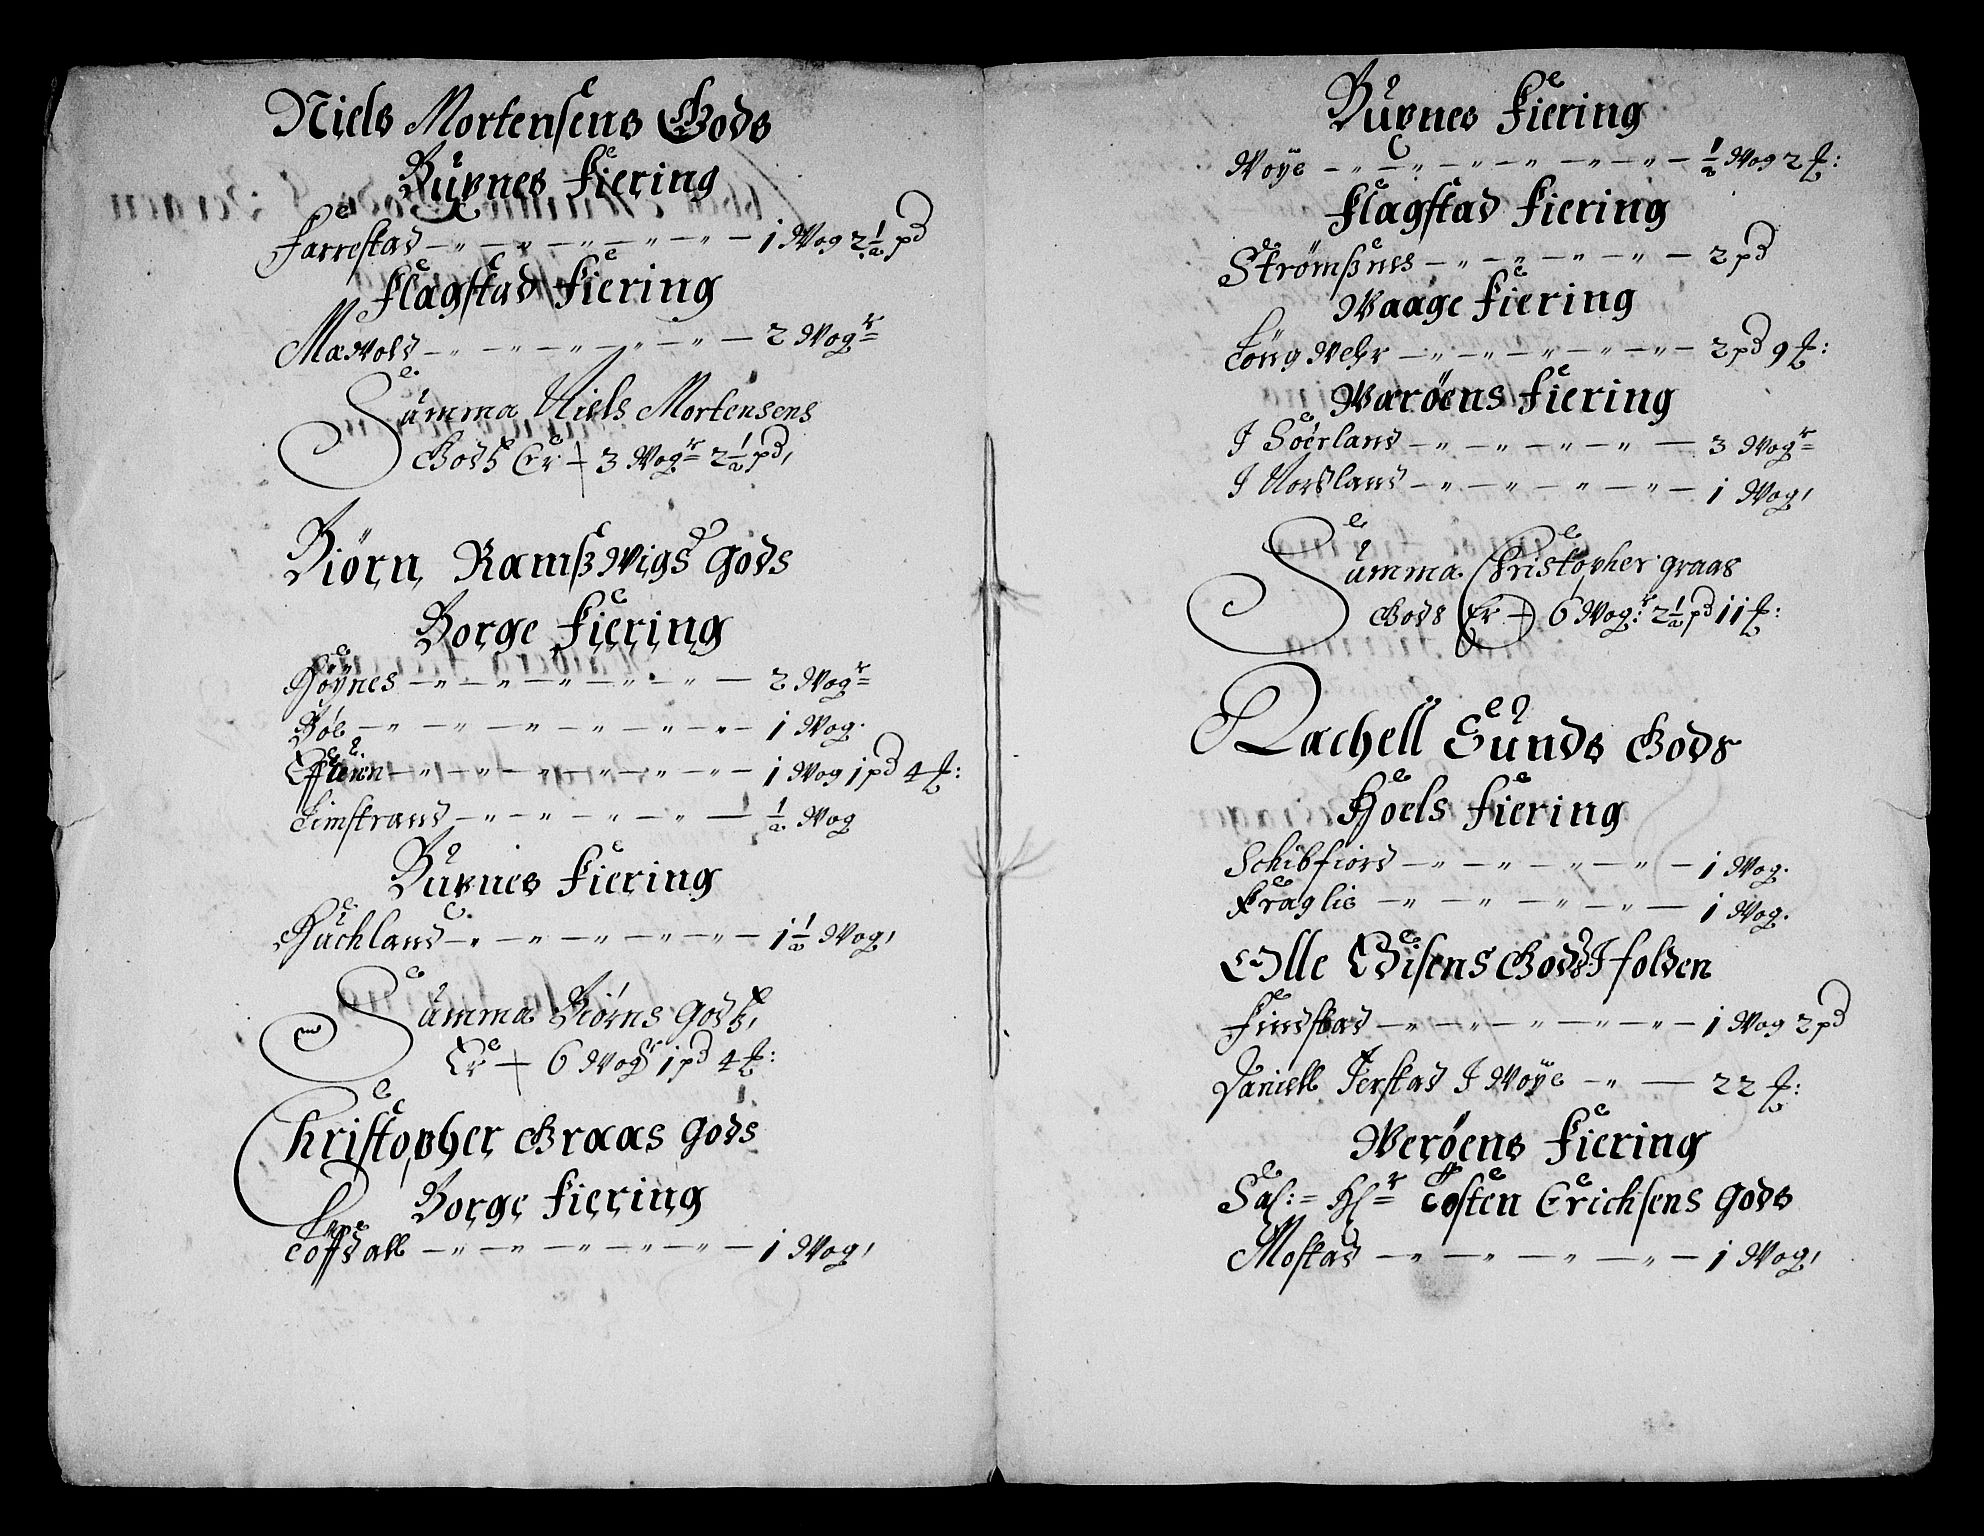 Niels Mortensens Gods
Buxnes Fiering
Farrestad — 1 Wog 2½ pd
Flagstad Fiering
Maxvold — 2 Wogr
Summa Niels Mortensens
Godß Er — 3 Wogr 2½ pd,
Biörn Ramßwigs gods
Borge Fiering
Höynes — 2 Wogr
Böe — 1 Wog.
— 1 Wog 1 pd 4 ℔:
Limstrand — ½ Wog
Buxnes Fiering
Huchland — 1½ Wog,
Summa Biörns godß,
Er — 6 Wogr 1 pd 4 ℔:
Christopher Graas gods
Borge Fiering
— 1 Wog,
Buxnes Fiering
Woye — ½ Wog 2 ℔:
Flagstad Fiering
Strömßnes — 2 pd
Waage Fiering
— 2 pd 9 ℔:
Waröens Fiering
I Söerland — 3 Wogr
I Nordland — 1 Wog,
Summa Christopher graas
Gods Er — 6 Wog:r 2½ pd 11 ℔:
Rachell Lunds Gods
Hoels Fiering
Schibfiord — 1 Wog.
Kraglie — 1 Wog.
Olle Edisens Gods I folden
Findstad — 1 Wog 2 pd
Daniell Jerstad I Woye — 22 ℔:
Weröens Fiering
Sal: Hr Tosten Erichsens gods
Mostad — 1 Wog,